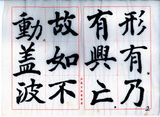 形有乃
有興亡
故如不
動盖波